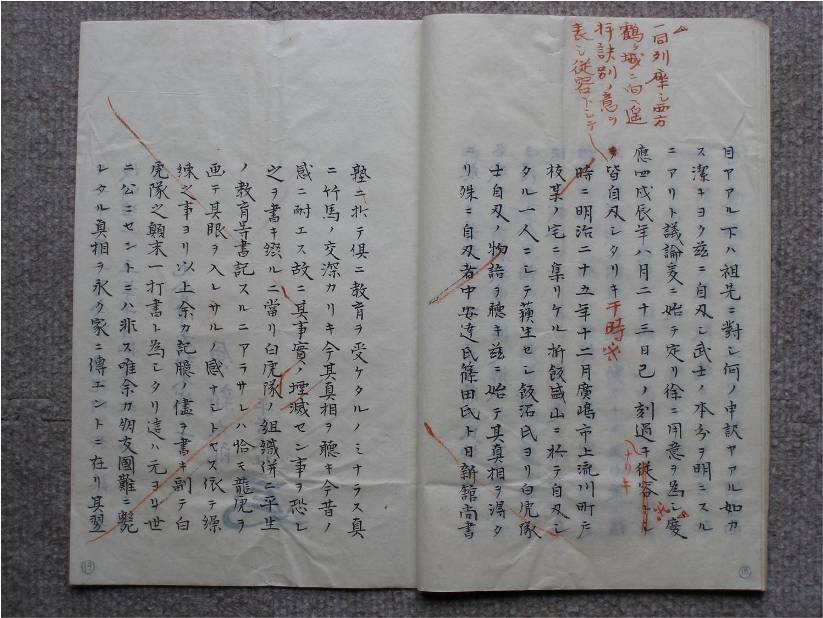 一同列座シ西方
鶴ヶ城ニ向ヘ遥
拝訣別ノ意ヲ
表シ従容トシテ
目ヤアル下ハ祖先ニ對シ何ノ申訳ヤアル如カ
ス潔キヨク茲ニ自刃シ武士ノ本分ヲ明ニスル
ニアリト議論爰ニ始テ定リ徐ニ用意ヲ為シ慶
應四戊辰年八月二十三日巳ノ刻過キ従容トシテ
ナリキ
皆自刃シタリキ于時
時ニ明治二十五年十二月廣嶋市上流川町戸
枝某ノ宅ニ集リケル折飯盛山ニ於テ自刃シ
タル一人ニシテ蘇生セシ飯沼氏ヨリ白虎隊
士自刃ノ物語ヲ聴キ茲ニ始テ其真相ヲ得タ
リ殊ニ自刃者中安達氏篠田氏ト日新舘尚書
塾ニ於テ倶ニ教育ヲ受ケタルノミナラス真
ニ竹馬ノ交深カリキ今其真相ヲ聴キ今昔ノ
感ニ耐エス故ニ其事實ノ堙滅セン事ヲ恐レ
之ヲ書キ綴ルニ當リ白虎隊ノ組織併ニ平生
ノ教育等書記スルニアラサレハ恰モ龍虎ヲ
画テ其眼ヲ入レサルノ感ナントセス依テ繰
練之事ヨリ以上余カ記臆ノ儘ヲ書キ副テ白
虎隊之顛末一打書ト為シタリ這ハ元ヨリ世
ニ公ニセントニハ非ス唯余カ朋友國難ニ斃
レタル真相ヲ永ク家ニ傳エントニ在リ其翌
18
19